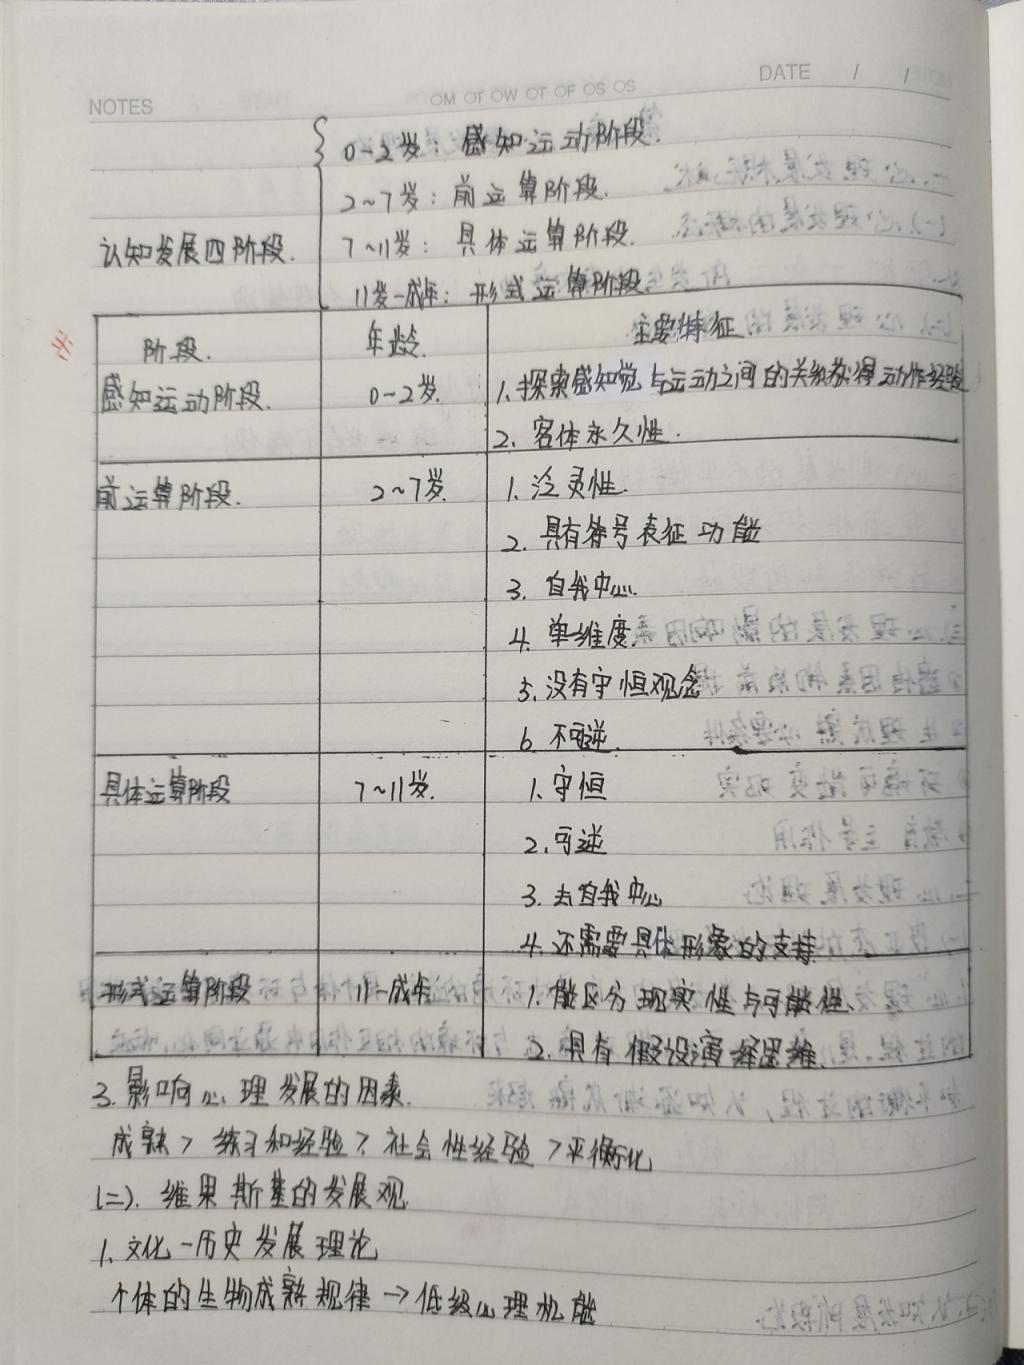 NOTES
DATE / /
0-2岁：感知运动阶段.
2~7岁：前运算阶段.
认知发展四阶段.
7~11岁：具体运算阶段.
11岁-成年：形式运算阶段
阶段.
年龄.
主要特征
感知运动阶段.
0-2岁.
1.探索感知觉与运动之间的关系获得动作经验
2.客体永久性.
前运算阶段.
2~7岁.
1.泛灵性.
2.具有符号表征功能
3.自我中心.
4.单维度.
5.没有守恒观念
6.不可逆.
具体运算阶段
7~11岁.
1.守恒
2.可逆
3.去自我中心
4.还需要具体形象的支持
形式运算阶段
11-成年
1.能区分现实性与可能性.
2.具有假设演绎思维.
3.影响心理发展的因素.
成熟>练习和经验>社会性经验>平衡化
(二).维果斯基的发展观.
1.文化-历史发展理论
个体的生物成熟规律→低级心理机能